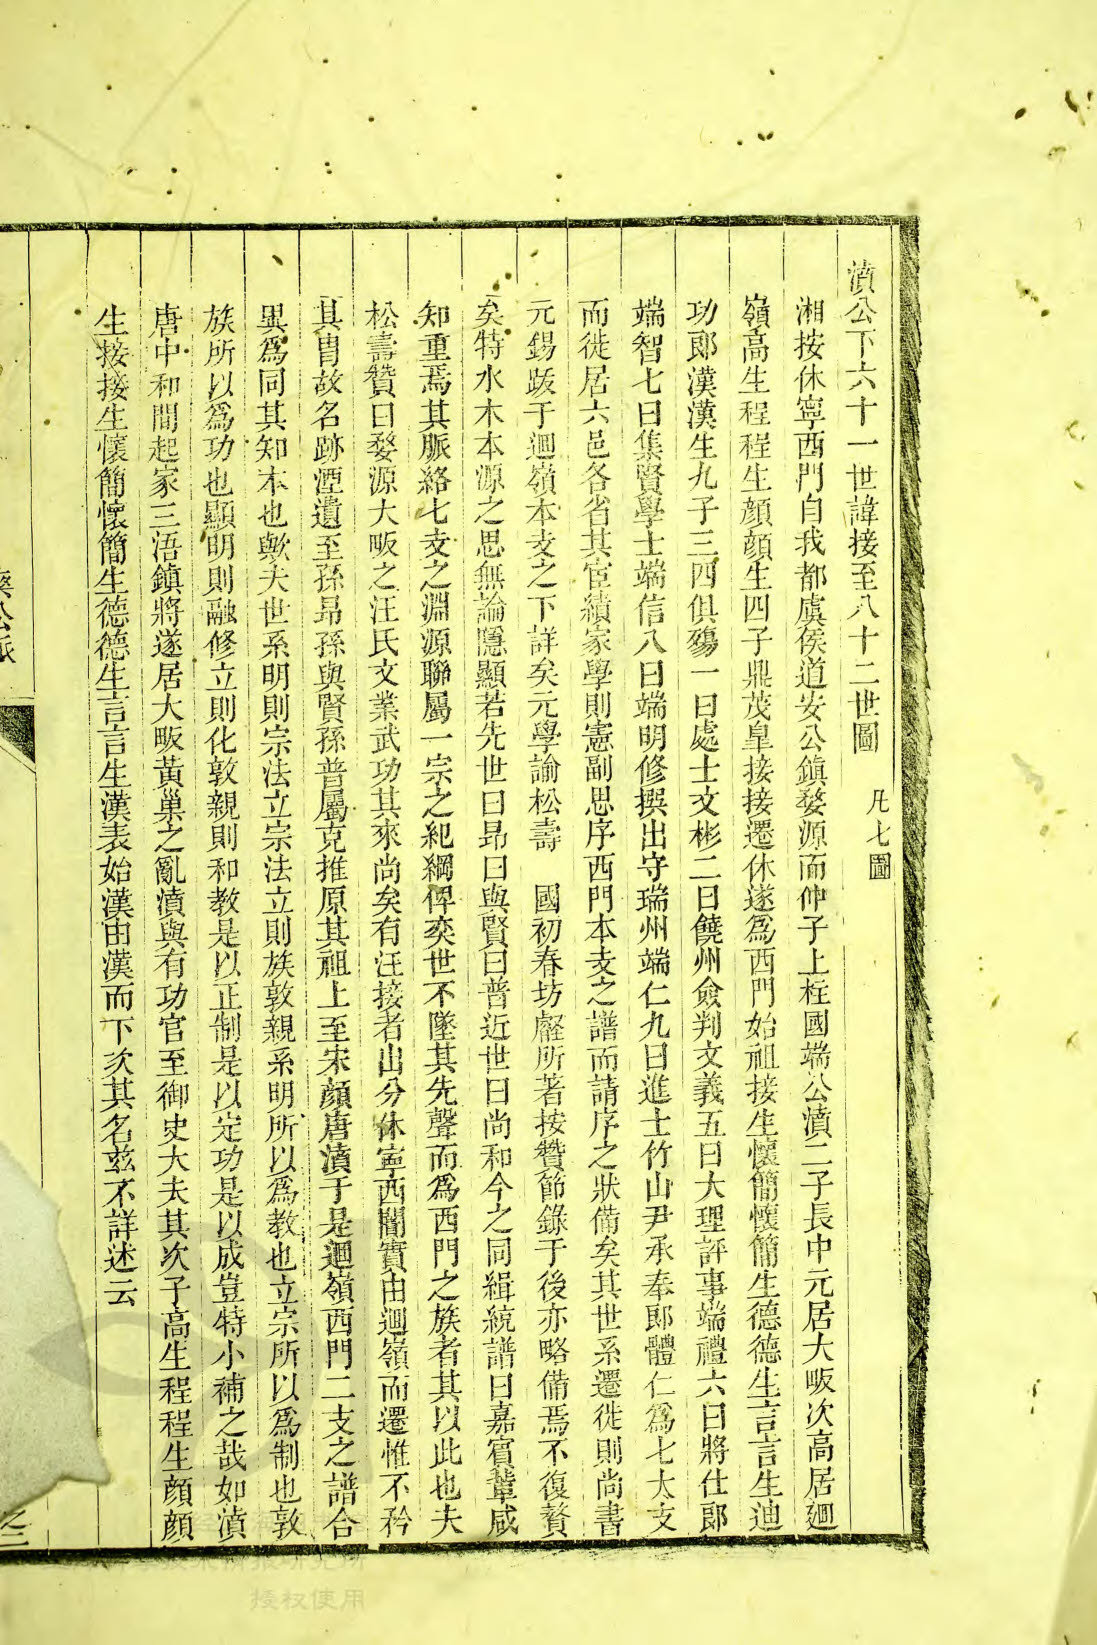 濆公下六十一世諱接至八十二世圖 凡七圖
湘按休寧西門自我都虞侯道安公鎮婺源而仲子上柱國端公濆二子長中元居大畈次高居迴
嶺高生程程生顏顏生四子鼎茂皇接接遷休遂爲西門始祖接生懷簡懷簡生德德生言言生迪
功郎漢漢生九子三四俱殤一曰處士文彬二曰饒州僉判文義五曰大理評事端禮六曰將仕郎
端智七曰集賢學士端信八曰端明修撰出守瑞州端仁九曰進士竹山尹承奉郎體仁爲七大支
而徙居六邑各省其宦績家學則憲副思序西門本支之譜而請序之狀備矣其世系遷徙則尚書
元錫跋于迴嶺本支之下詳矣元學諭松壽 國初春坊叡所著按贊節錄于後亦略備焉不復贅
矣特水木本源之思無論隱顯若先世曰昻曰與賢曰普近世曰尚和今之同緝統譜曰嘉賓輩咸
知重焉其脈絡七支之淵源聯屬一宗之紀綱俾奕世不墜其先聲而爲西門之族者其以此也夫
松壽贊曰婺源大畈之汪氏文業武功其來尚矣有汪接者出分休寧西閣實由迴嶺而遷惟不矜
其胄故名跡湮遺至孫昻孫與賢孫普屬克推原其祖上至宋顏唐濆于是迴嶺西門二支之譜合
異爲同其知本也歟夫世系明則宗法立宗法立則族敦親系明所以爲教也立宗所以爲制也敦
族所以爲功也顯明則融修立則化敦親則和教是以正制是以定功是以成豈特小補之哉如濆
唐中和間起家三浯鎮將遂居大畈黃巢之亂濆與有功官至御史大夫其次子高生程程生顏顏
生接接生懷簡懷簡生德德生言言生漢表始漢由漢而下次其名茲不詳述云
公派
授权使用